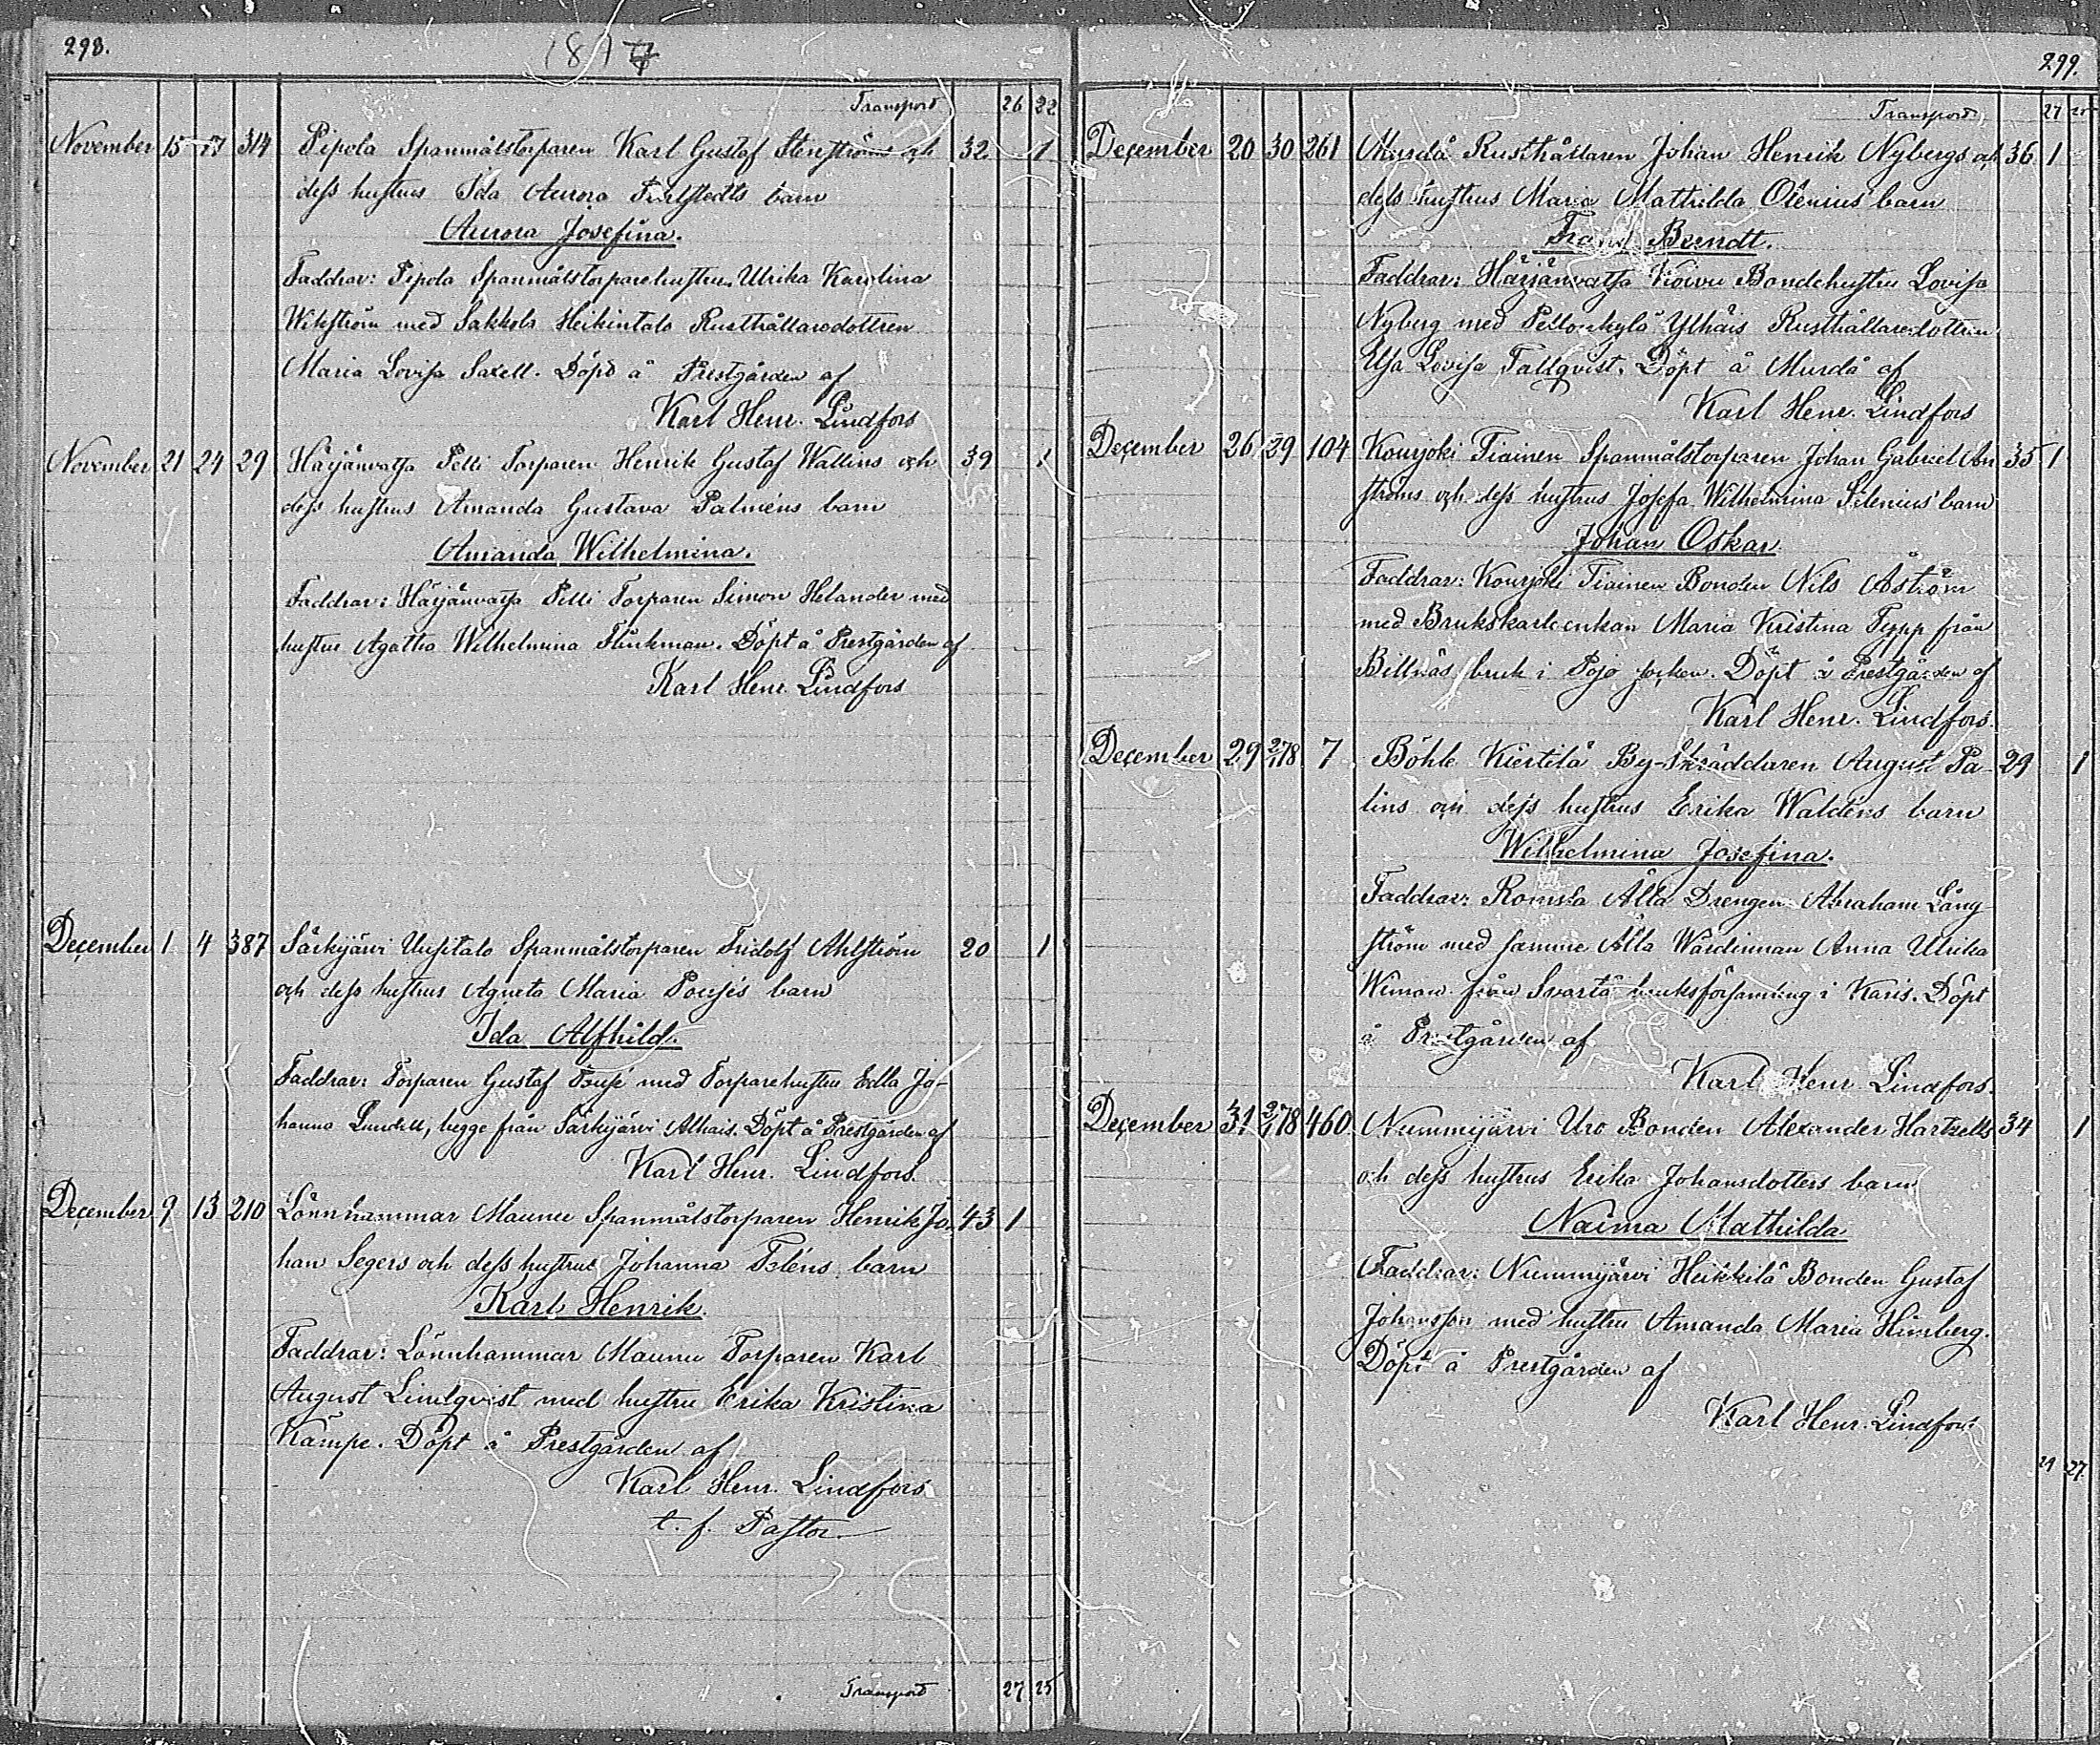 298.
1877
Transport 26 22
November 15 17 314 Pipola Spanmålstorparen Karl Gustaf Stenströms och 32 1
dess hustrus Ida Aurora barn
Aurora Josefina.
Faddrar: Pipola Spanmålstorparehustrun Ulrika Karolina
Wikström med Sakkola Heikintalo Rusthållaredottren
Maria Lovisa Saxell. Döpt å Prestgården af
Karl Henr. Lindfors
November 21 24 29 Härjänvatsa Pelli Torparen Henrik Gustaf Wallins och 39 1
dess hustrus Amanda Gustava Palméns barn
Amanda Wilhelmina.
Faddrar: Härjänvatsa Pelli Torparen Simon Helander med
hustru Agatha Wilhelmina Flinkman. Döpt å Prestgården af
Karl Henr. Lindfors
December 1 4 387 Särkijärvi Uusitalo Spanmålstorparen Fridolf Ahlström 20 1
och dess hustrus Agneta Maria barn
Ida Alfhild.
Faddrar: Torparen Gustaf med Torparehustru Edla Jo-
hanna Lundell, begge från Särkijärvi Alhais. Döpt å Prestgården af
Karl Henr. Lindfors.
December 9 13 210 Lönnhammar Maunu Spanmålstorparen Henrik Jo- 43 1
han Segers och dess hustrus Johanna barn
Karl Henrik.
Faddrar: Lönnhammar Maunu Torparen Karl
August Lindqvist med hustru Erika Kristina
Kämpe. Döpt å Prestgården af
Karl Henr. Lindfors
t. f. Pastor
Transport 27 25
299.
Transport 27 25
December 20 30 261 Murdå Rusthållaren Johan Henrik Nybergs och 36 1
dess hustrus Maria Mathilda Olenius barn
Frans Berndt.
Faddrar: Härjänvatsa Koivu Bondehustru Lovisa
Nyberg med Pellonkylä Ylhäis Rusthållaredottren
Elsa Lovisa Tallqvist. Döpt å Murdå af
Karl Henr. Lindfors
December 26 29 104 Kourjoki Tiainen Spanmålstorparen Johan Gabriel An 35 1
ströms och dess hustrus Josefa Wilhelmina Silenius barn
Johan Oskar
Faddrar: Kourjoki Tiainen Bonden Nils Åström
med Brukskarlsenkan Maria Kristina Typp från
Billnäs bruk i Pojo socken. Döpt å Prestgården af
Karl Henr. Lindfors.
December 29 2/1 78 7 Böhle Kiertilä By-Skräddaren August Pa- 29 1
lins och dess hustrus Erika Waldéns barn
Wilhelmina Josefina.
Faddrar: Romsla Ålla Drengen Abraham Lång-
ström med samme Ålla Wärdinnan Anna Ulrika
Wiman från Svartå bruksförsamling i Karis. Döpt
å Prestgården af
Karl Henr Lindfors.
December 31 2/1 78 460 Nummijärvi Uro Bonden Alexander Hartzells 34 1
och dess hustrus Erika Johansdotters barn
Naima Mathilda
Faddrar: Nummijärvi Heikkilä Bonden Gustaf
Johansson med hustru Amanda Maria Himberg.
Döpt å Prestgården af
Karl Henr. Lindfors
29 27